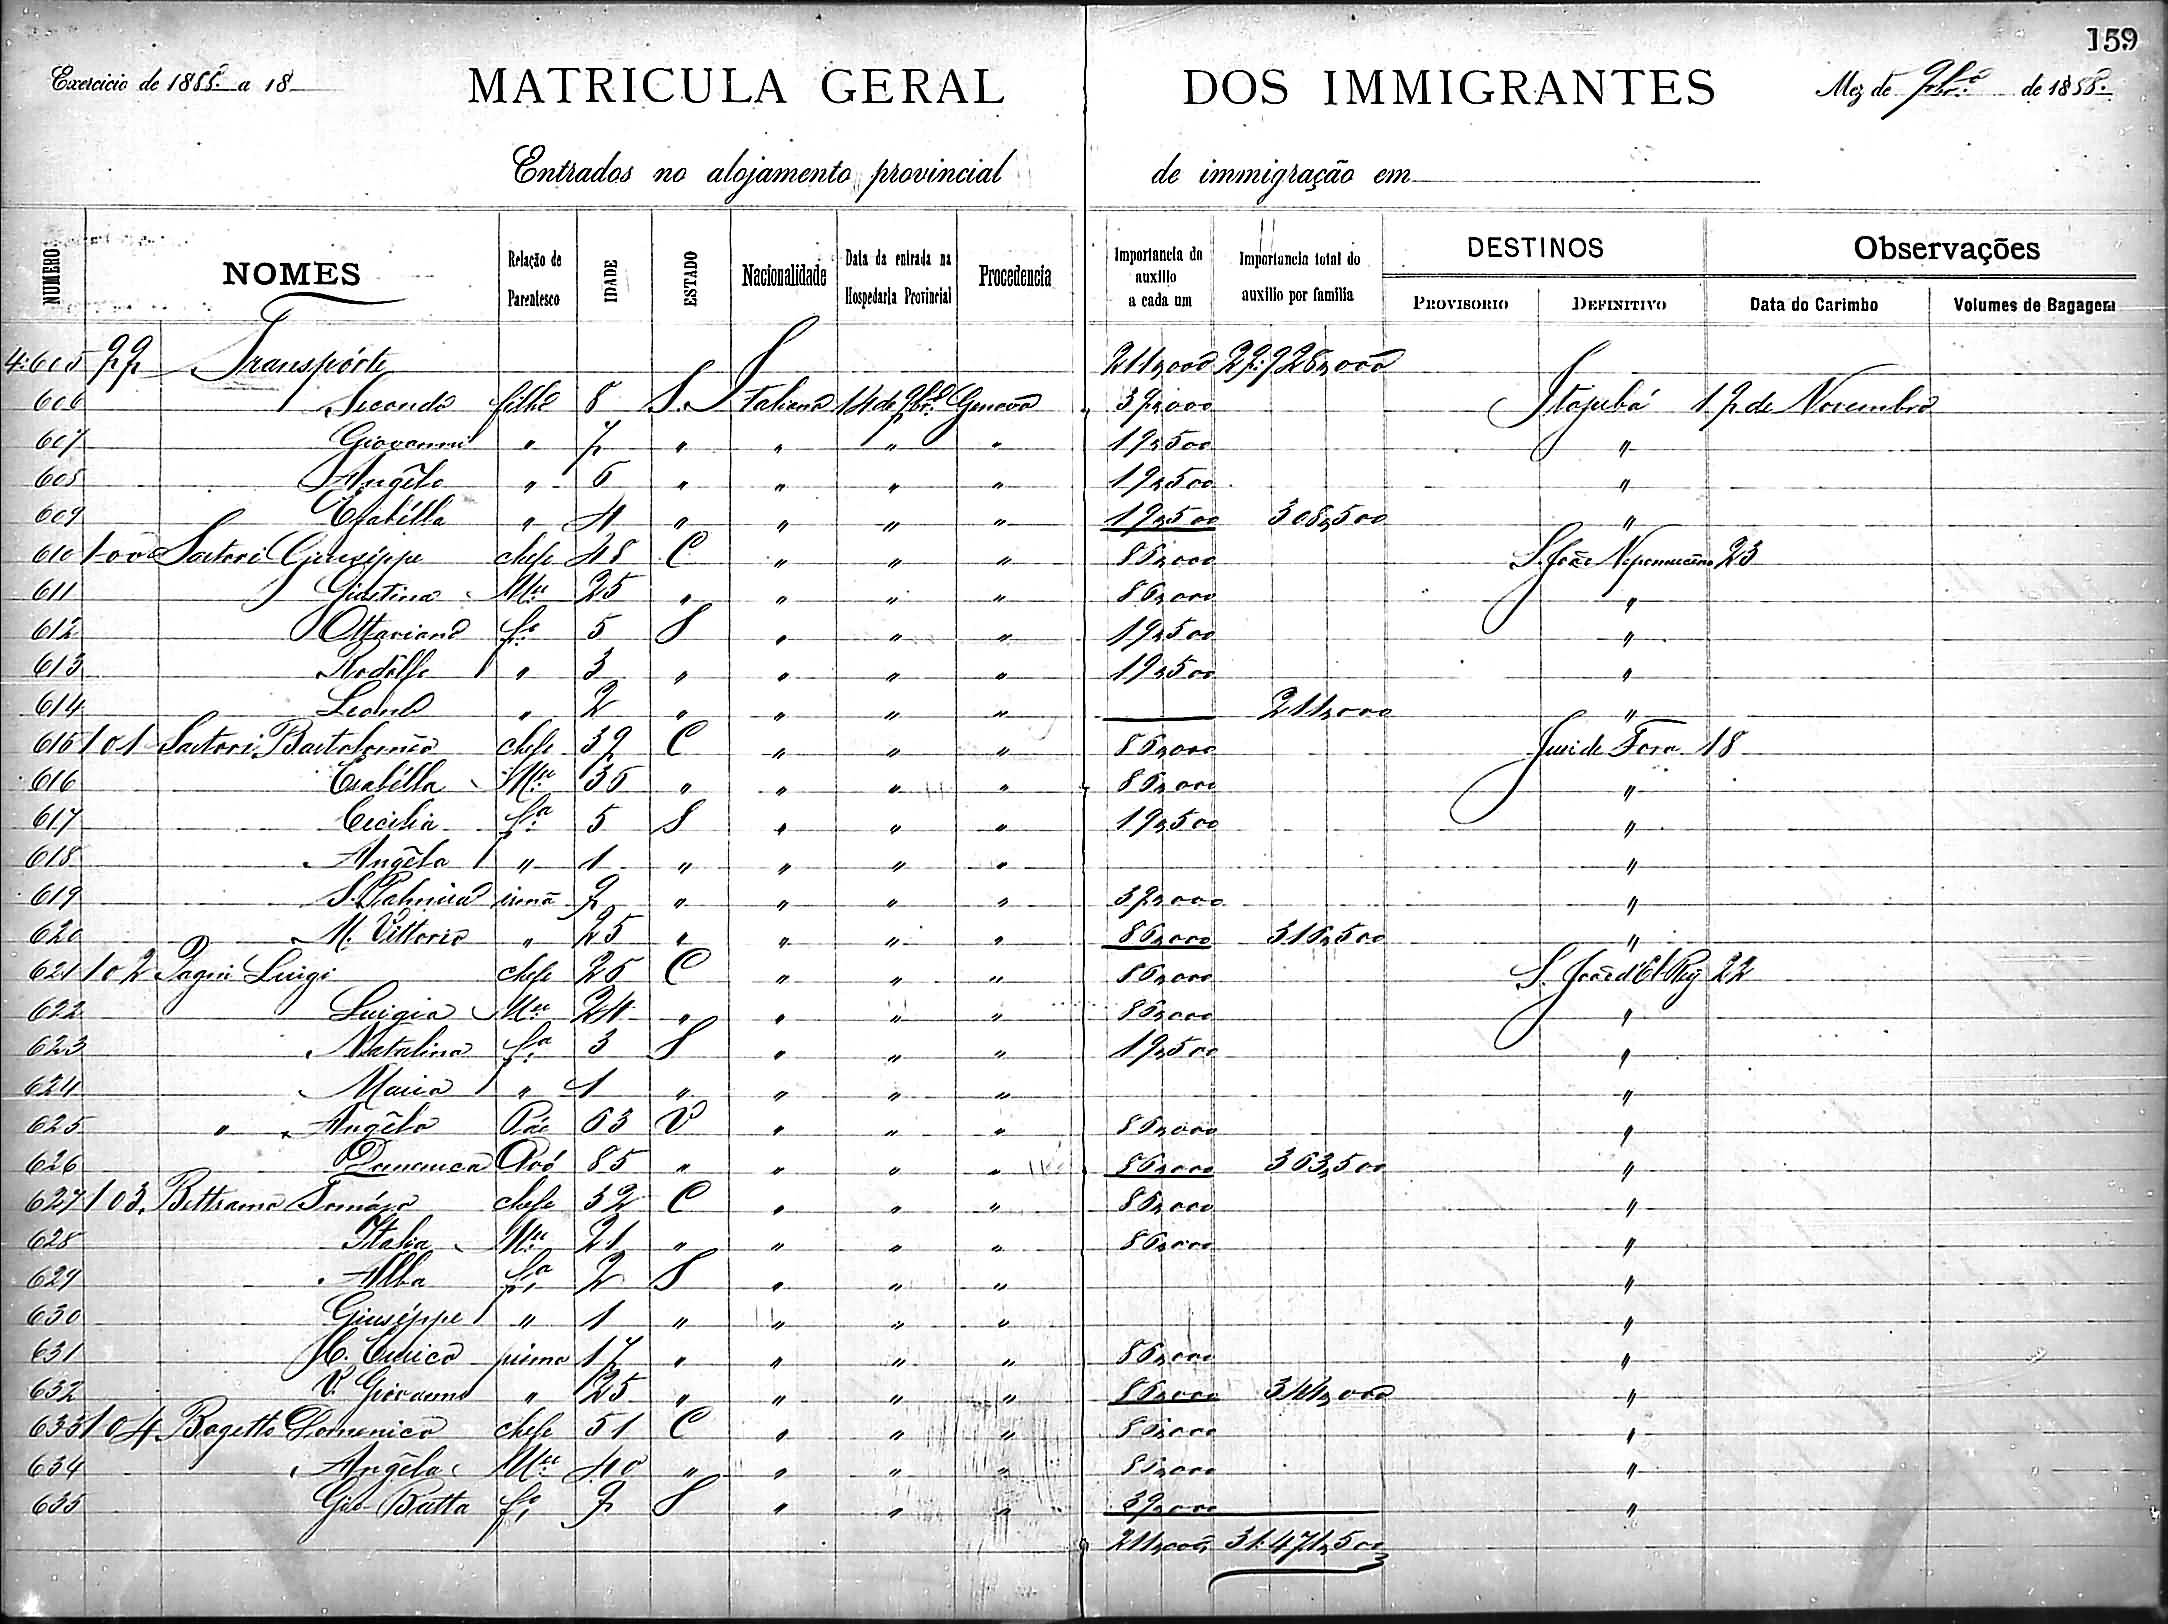 159
Exercicio de 1888 a 18
MATRICULA GERAL DOS IMMIGRANTES
Mez de 9br.º de 1888.
Entrados no alojamento provincial de immigração em
NUMERO NOMES Relação de Parentesco IDADE ESTADO Nacionalidade Data da entrada na Hospedaria Provincial Procedencia Importancia do auxilio a cada um Importancia total do auxilio por familia DESTINOS PROVISORIO DEFINITIVO Observações Data do Carimbo Volumes de Bagagem
4:605 99 Transpórte 211,000 29:928,000
606 Secondo filho 8 S. Italiana 14 de 9br.º Genova 39,000 Itajubá 19 de Novembro
607 Giovanni " 7 " " " " 19,500 "
608 Angelo " 6 " " " " 19,500 "
609 Isabélla " 4 " " " " 19,500 308,500 "
610 100 Sartori Giuséppe chefe 48 C " " " 86,000 S. João Nepomuceno 23
611 Giustina Mer 25 " " " " 86,000 "
612 Ottaviano fº 5 S " " " 19,500 "
613 Rodólfo " 3 " " " " 19,500 "
614 " 2 " " " " 211,000 "
615 101 Sartori Bartolomeo chefe 39 C " " " 86,000 Juiz de Fora 18
616 Isabélla Mer 35 " " " " 86,000 "
617 Cecilia fª 5 S " " " 19,500 "
618 Angéla " 1 " " " " "
619 S. irmã 9 " " " " 39,000 "
620 M. Vittorio " 25 " " " " 86,000 316,500 "
621 102 Pagni Luigi chefe 26 C " " " 86,000 S. João d'El-Rey 22
622 Luigia Mer 24 " " " " 86,000 "
623 Natalina fª 3 S " " " 19,500 "
624 Maria " 1 " " " " "
625 " Angélo Pae 63 V " " " 86,000 "
626 Domenica Avó 85 " " " " 86,000 363,500 "
627 103. Beltramo chefe 32 C " " " 86,000 "
628 Italia Mer 21 " " " " 86,000 "
629 Alba fª 2 S " " " "
630 Giuséppe " 1 " " " " "
631 C. Enrico primo 17 " " " " 86,000 "
632 V. Giovanni " 25 " " " " 86,000 344,000 "
633 104 Bogetto Domenico chefe 51 C " " " 86,000 "
634 Angéla Mer 40 " " " " 86,000 "
635 Gio Batta fº 9 S " " " 39,000 "
211,000 31:471,500